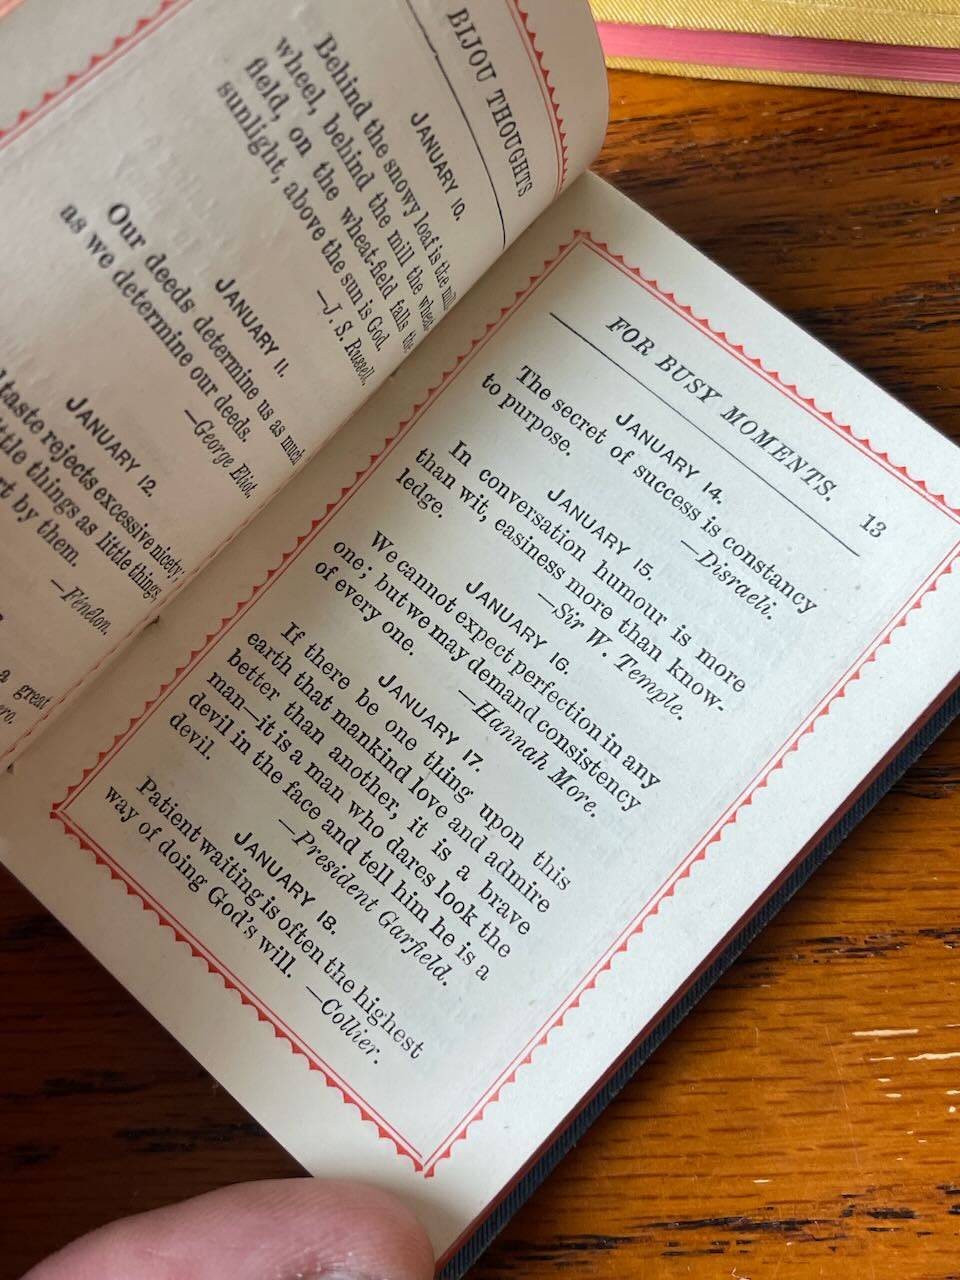 BIJOU THOUGHTS
JANUARY 10.
Behind the snowy loaf is the mill
wheel, behind the mill the wheat-
field, on the wheat-field falls the
sunlight, above the sun is God.
—J. S. Russell.
JANUARY 11.
Our deeds determine us as much
as we determine our deeds.
—George Eliot.
JANUARY 12.
taste rejects excessive nicety;
little things as little things,
by them.
—Fénelon.
a great
FOR BUSY MOMENTS. 13
JANUARY 14.
The secret of success is constancy
to purpose. —Disraeli.
JANUARY 15.
In conversation humour is more
than wit, easiness more than know-
ledge. —Sir W. Temple.
JANUARY 16.
We cannot expect perfection in any
one; but we may demand consistency
of every one. —Hannah More.
JANUARY 17.
If there be one thing upon this
earth that mankind love and admire
better than another, it is a brave
man—it is a man who dares look the
devil in the face and tell him he is a
devil. —President Garfield.
JANUARY 18.
Patient waiting is often the highest
way of doing God's will. —Collier.